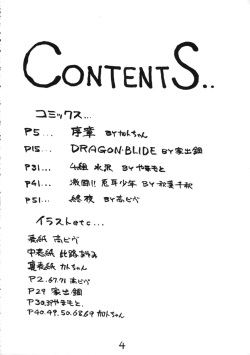 CONTENTS..
コミックス...
P5... 序章 BYカトちゃん
P15... DRAGON・BLIDE BY家出鋼
P31... 4組 水沢 BYやまもと
P41... 激闘!! 忍耳少年 BY
P51... 終夜 BY高ピゲ
イラストetc...
表紙 高ピゲ
中表紙
裏表紙 カトちゃん
P2.67.71 高ピゲ
P29 家出鋼
P30.39やまもと.
P40.49.50.68.69 カトちゃん
4